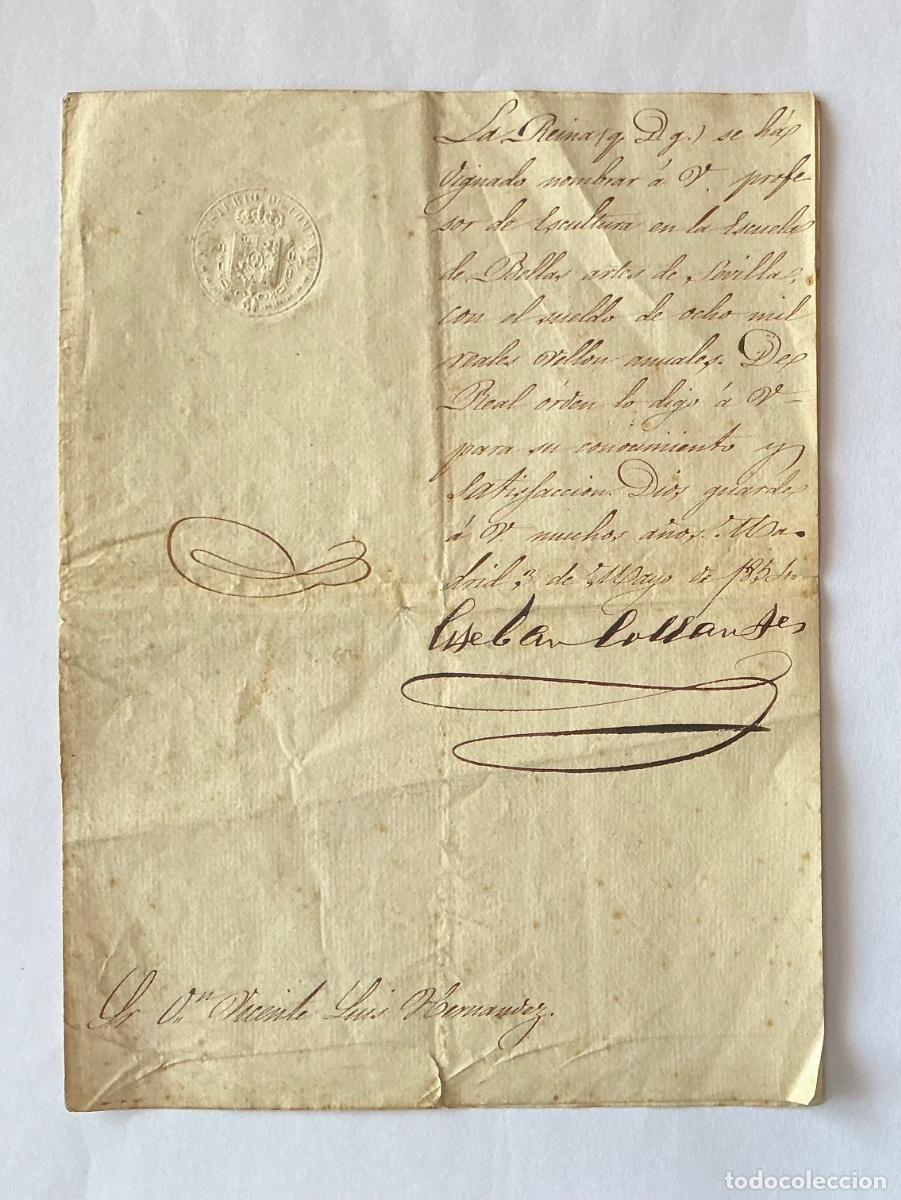 MINISTERIO DE FOMENTO
La Reina (q. D. g.) se há
dignado nombrar á V. profe
sor de Escultura en la Escuela
de Bellas artes de Sevilla,
con el sueldo de ocho mil
reales vellon anuales. De
Real órden lo digo á V-
para su conocimiento y
satisfaccion. Dios guarde
á V. muchos años. Ma-
drid 3 de Mayo de 1854
Esteban Collantes
Sr Dn Vicente Luis Hernandez.
todocoleccion